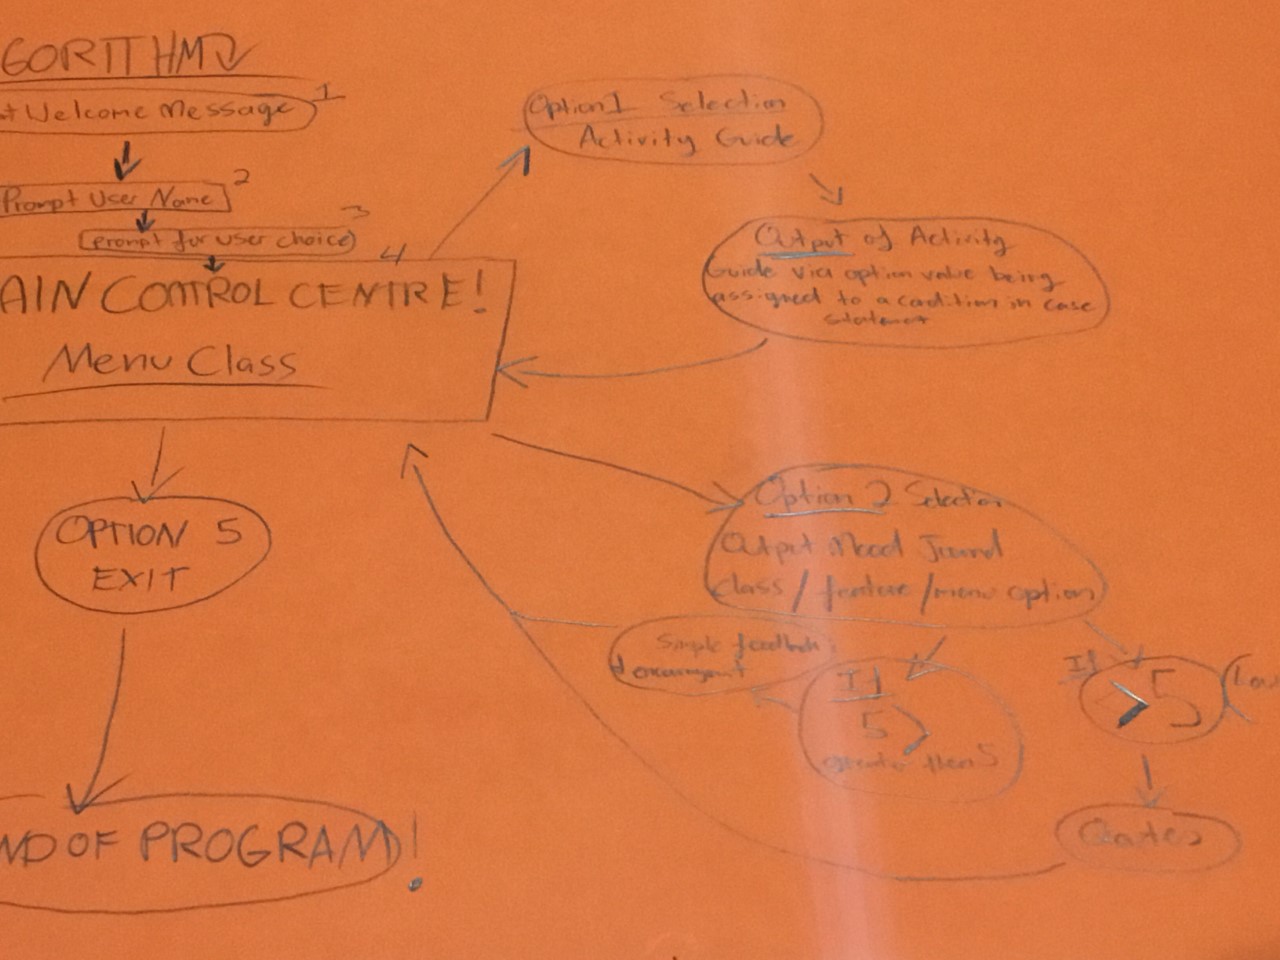 GORITHM
t Welcome Message 1
Prompt User Name 2
prompt for user choice 3
4
AIN CONTROL CENTRE!
Menu Class
OPTION 5
EXIT
ND OF PROGRAM!
Option 1 Selection
Activity Guide
Output of Activity
Guide via option value being
assigned to a condition in case
statement
Option 2 Selection
Output Mood Journal
class / feature / menu option
Simple feedback
If
5 >
greater then 5
If
> 5
(Low
Quotes